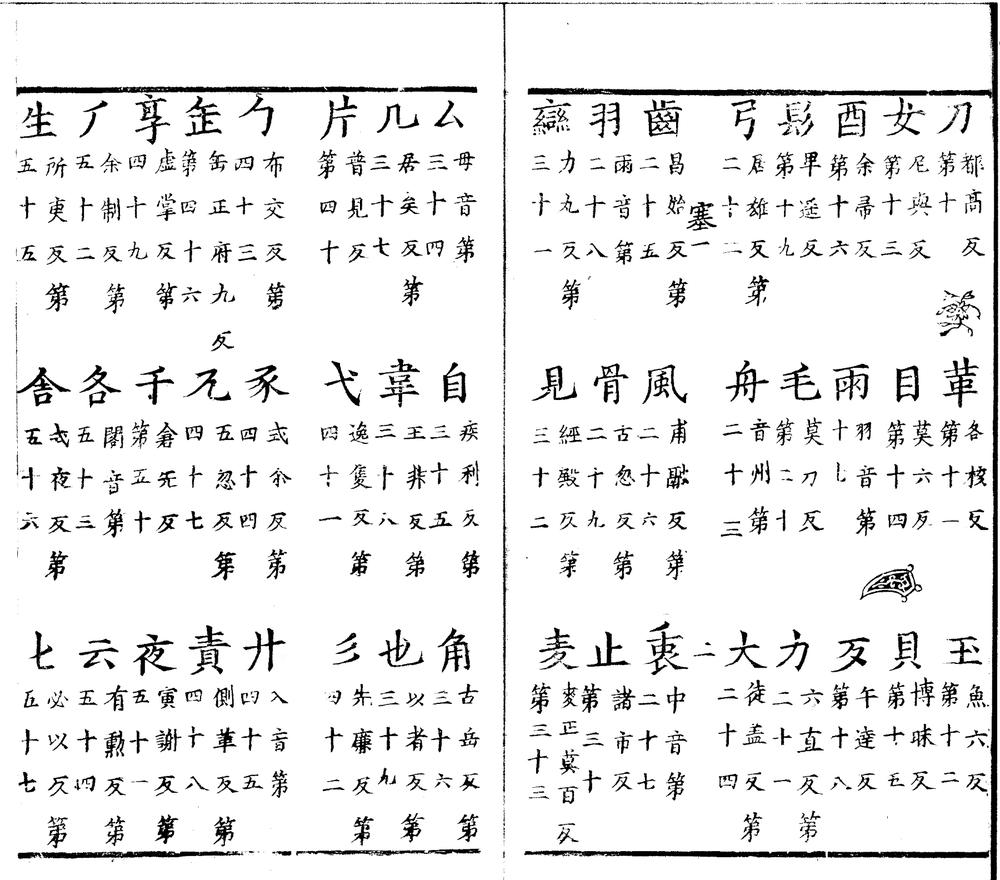 刀都高反第十 革各核反第十一 玉魚六反第十二
女尼與反第十三 目莫六反第十四 貝博昧反第十五
酉余帚反第十六 雨羽音第十七 歹午達反第十八
髟畢遥反第十九 毛莫刀反第二十 力六直反第二十一
弓居雄反第二十二 舟音州第二十三 大徒盖反第二十四
塞一 二
齒昌始反第二十五 風甫融反第二十六 衷中音第二十七
羽雨音第二十八 骨古忽反第二十九 止諸市反第三十
䜌力丸反第三十一 見經殿反第三十二 麦麥正莫百反第三十三
厶毋音第三十四 自疾利反第三十五 角古岳反第三十六
几居矣反第三十七 韋王非反第三十八 也以者反第三十九
片普見反第四十 弋逸隻反第四十一 彡先廉反第四十二
勹布交反第四十三 豕式尒反第四十四 廾入音第四十五
缶正府九反第四十六 兀五忽反第四十七 責側革反第四十八
享虛掌反第四十九 千倉先反第五十 夜寅謝反第五十一
𠂆余制反第五十二 各閣音第五十三 云有勲反第五十四
生所庚反第五十五 舍式夜反第五十六 匕必以反第五十七